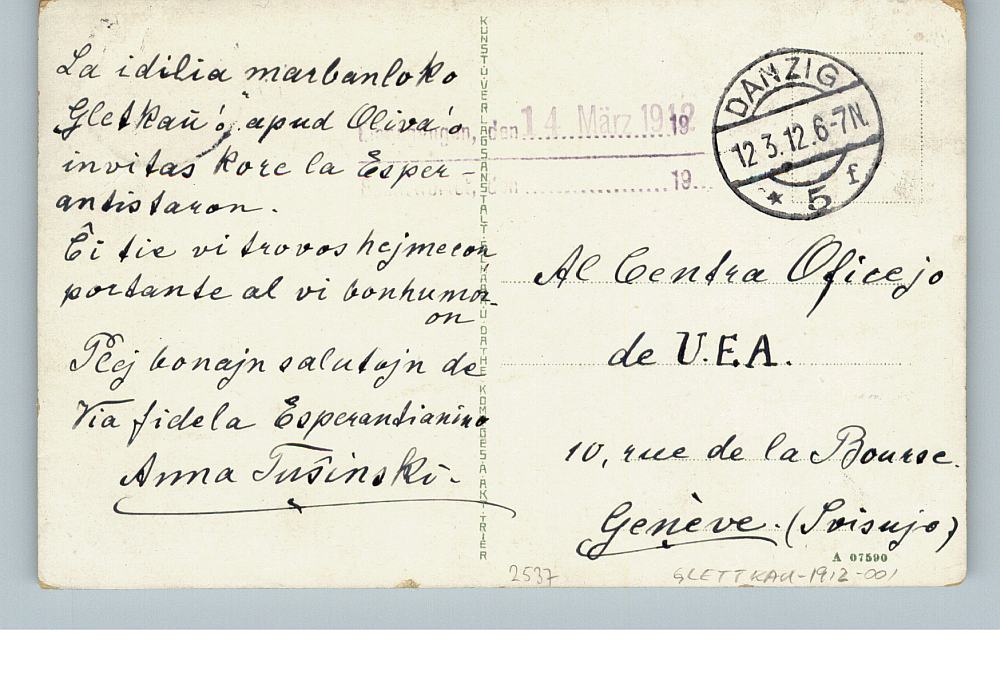 La idilia marbanloko
Gletkaŭ'o apud Oliva'o
invitas kore la Esper-
antistaron.
Ĉi tie vi trovos hejmecon
portante al vi bonhumor-
on
Plej bonajn salutojn de
Via fidela Esperantianino
Anna Tuŝinski.
KUNST U. VERLAGSANSTALT SCHAAR U. DATHE KOMM.GES.A.AKT. TRIER
den 14. März 1912 19
19
DANZIG
12 3.12.6-7N.
* 5 f
Al Centra Oficejo
de U.E.A.
10, rue de la Bourse.
Genève. (Svisujo)
A 07590
2537
GLETTKAU-1912-001